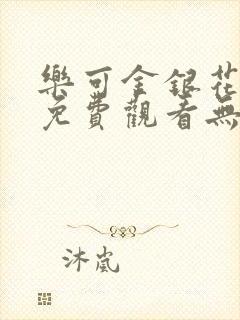 樂可金銀花
免費觀看無
沐嵐